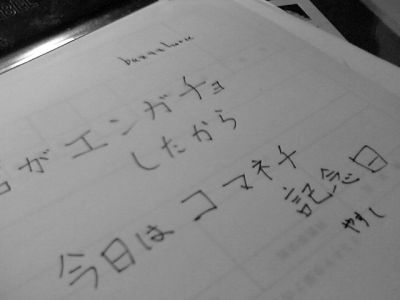 がエンガチョ
したから
今日はコマネチ
記念日
やすし